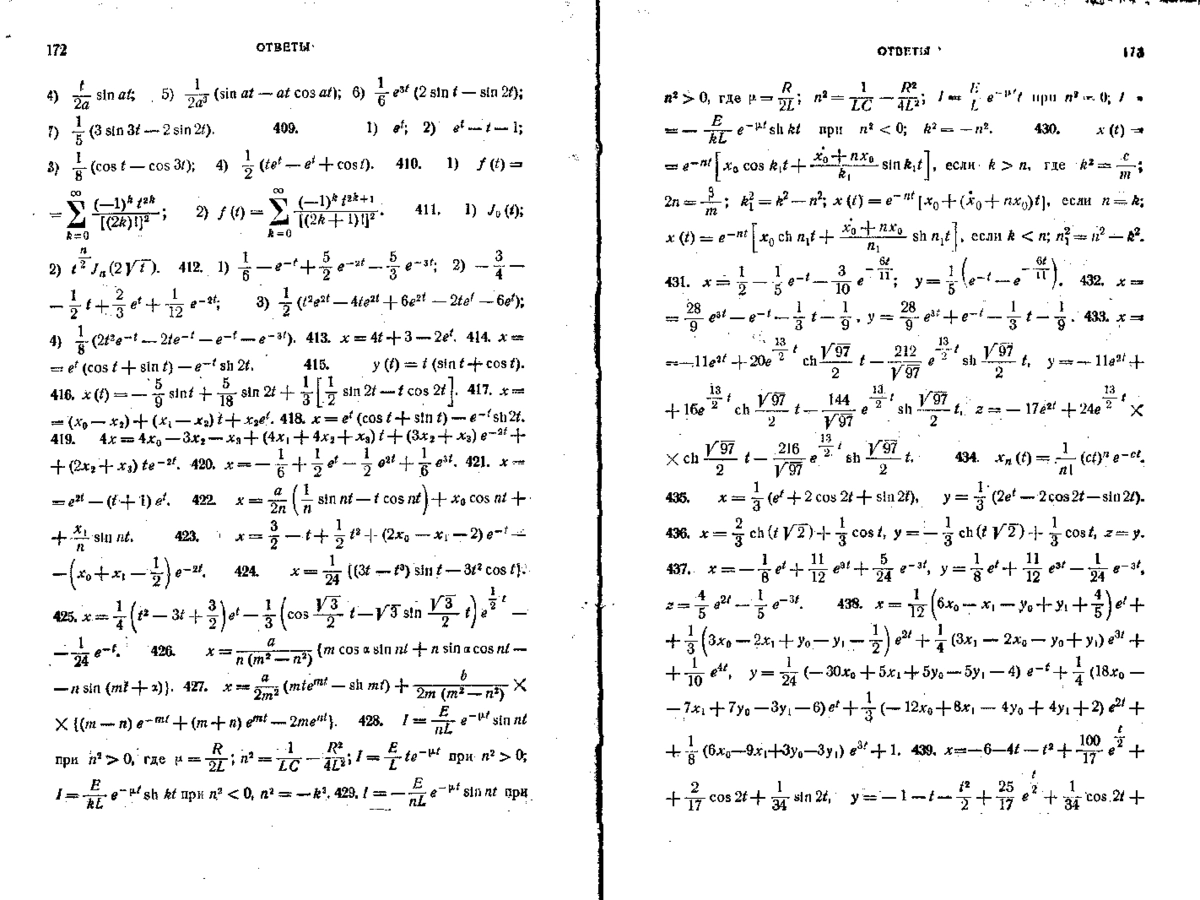 172 ОТВЕТЫ
4) t/2a sin at; 5) 1/2a³ (sin at — at cos at); 6) 1/6 e³ᵗ (2 sin t — sin 2t);
7) 1/5 (3 sin 3t — 2 sin 2t). 409. 1) eᵗ; 2) eᵗ — t — 1;
3) 1/8 (cos t — cos 3t); 4) 1/2 (teᵗ — eᵗ + cos t). 410. 1) f (t) =
= ∑_{k=0}^{∞} (—1)ᵏ t²ᵏ / [(2k)!]²; 2) f (t) = ∑_{k=0}^{∞} (—1)ᵏ t²ᵏ⁺¹ / [(2k + 1)!]². 411. 1) J₀ (t);
2) t^{n/2} Jₙ (2√t). 412. 1) 1/6 — e⁻ᵗ + 5/2 e⁻²ᵗ — 5/3 e⁻³ᵗ; 2) — 3/4 —
— 1/2 t + 2/3 eᵗ + 1/12 e⁻²ᵗ; 3) 1/2 (t²e²ᵗ — 4te²ᵗ + 6e²ᵗ — 2teᵗ — 6eᵗ);
4) 1/8 (2t²e⁻ᵗ — 2te⁻ᵗ — e⁻ᵗ — e⁻³ᵗ). 413. x = 4t + 3 — 2eᵗ. 414. x =
= eᵗ (cos t + sin t) — e⁻ᵗ sh 2t. 415. y (t) = t (sin t + cos t).
416. x (t) = — 5/9 sin t + 5/18 sin 2t + 1/3 [1/2 sin 2t — t cos 2t]. 417. x =
= (x₀ — x₂) + (x₁ — x₂) t + x₂eᵗ. 418. x = eᵗ (cos t + sin t) — e⁻ᵗ sh 2t.
419. 4x = 4x₀ — 3x₂ — x₃ + (4x₁ + 4x₂ + x₃) t + (3x₂ + x₃) e⁻²ᵗ +
+ (2x₂ + x₃) te⁻²ᵗ. 420. x = — 1/6 + 1/2 eᵗ — 1/2 e²ᵗ + 1/6 e³ᵗ. 421. x =
= e²ᵗ — (t + 1) eᵗ. 422. x = a/2n (1/n sin nt — t cos nt) + x₀ cos nt +
+ x₁/n sin nt. 423. x = 3/2 — t + 1/2 t² + (2x₀ — x₁ — 2) e⁻ᵗ —
— (x₀ + x₁ — 1/2) e⁻²ᵗ. 424. x = 1/24 {(3t — t³) sin t — 3t² cos t}.
425. x = 1/4 (t² — 3t + 3/2) eᵗ — 1/3 (cos √3/2 t — √3 sin √3/2 t) e^{1/2 t} —
— 1/24 e⁻ᵗ. 426. x = a / n (m² — n²) {m cos α sin nt + n sin α cos nt —
— n sin (mt + α)}. 427. x = a/2m² (mteᵐᵗ — sh mt) + b / 2m (m² — n²) ×
× {(m — n) e⁻ᵐᵗ + (m + n) eᵐᵗ — 2meⁿᵗ}. 428. I = E/nL e^{—μt} sin nt
при n² > 0, где μ = R/2L; n² = 1/LC — R²/4L²; I = E/L te^{—μt} при n² > 0;
I = E/kL e^{—μt} sh kt при n² < 0, n² = — k². 429. I = — E/nL e^{—μt} sin nt при
ОТВЕТЫ 173
n² > 0, где μ = R/2L; n² = 1/LC — R²/4L²; I = E/L e^{—μt} t при n² = 0; I =
= — E/kL e^{—μt} sh kt при n² < 0; k² = — n². 430. x (t) =
= e⁻ⁿᵗ [x₀ cos k₁t + (ẋ₀ + nx₀)/k₁ sin k₁t], если k > n, где k² = c/m;
2n = β/m; k₁² = k² — n²; x (t) = e⁻ⁿᵗ [x₀ + (ẋ₀ + nx₀) t], если n = k;
x (t) = e⁻ⁿᵗ [x₀ ch n₁t + (ẋ₀ + nx₀)/n₁ sh n₁t], если k < n; n₁² = n² — k².
431. x = 1/2 — 1/5 e⁻ᵗ — 3/10 e^{—6t/11}; y = 1/5 (e⁻ᵗ — e^{—6t/11}). 432. x =
= 28/9 e³ᵗ — e⁻ᵗ — 1/3 t — 1/9, y = 28/9 e³ᵗ + e⁻ᵗ — 1/3 t — 1/9. 433. x =
= —11e²ᵗ + 20e^{13/2 t} ch √97/2 t — 212/√97 e^{13/2 t} sh √97/2 t, y = — 11e²ᵗ +
+ 16e^{13/2 t} ch √97/2 t — 144/√97 e^{13/2 t} sh √97/2 t, z = — 17e²ᵗ + 24e^{13/2 t} ×
× ch √97/2 t — 216/√97 e^{13/2 t} sh √97/2 t. 434. xₙ (t) = 1/n! (ct)ⁿ e⁻ᶜᵗ.
435. x = 1/3 (eᵗ + 2 cos 2t + sin 2t), y = 1/3 (2eᵗ — 2 cos 2t — sin 2t).
436. x = 2/3 ch (t √2) + 1/3 cos t, y = — 1/3 ch (t √2) + 1/3 cos t, z = y.
437. x = — 1/8 eᵗ + 11/12 e³ᵗ + 5/24 e⁻³ᵗ, y = 1/8 eᵗ + 11/12 e³ᵗ — 1/24 e⁻³ᵗ,
z = 4/5 e²ᵗ — 1/5 e⁻³ᵗ. 438. x = 1/12 (6x₀ — x₁ — y₀ + y₁ + 4/5) eᵗ +
+ 1/3 (3x₀ — 2x₁ + y₀ — y₁ — 1/2) e²ᵗ + 1/4 (3x₁ — 2x₀ — y₀ + y₁) e³ᵗ +
+ 1/10 e⁴ᵗ, y = 1/24 (— 30x₀ + 5x₁ + 5y₀ — 5y₁ — 4) e⁻ᵗ + 1/4 (18x₀ —
— 7x₁ + 7y₀ — 3y₁ — 6) eᵗ + 1/3 (— 12x₀ + 8x₁ — 4y₀ + 4y₁ + 2) e²ᵗ +
+ 1/8 (6x₀ — 9x₁ + 3y₀ — 3y₁) e³ᵗ + 1. 439. x = —6 — 4t — t² + 100/17 e^{t/2} +
+ 2/17 cos 2t + 1/34 sin 2t, y = — 1 — t — t²/2 + 25/17 e^{t/2} + 1/34 cos 2t +